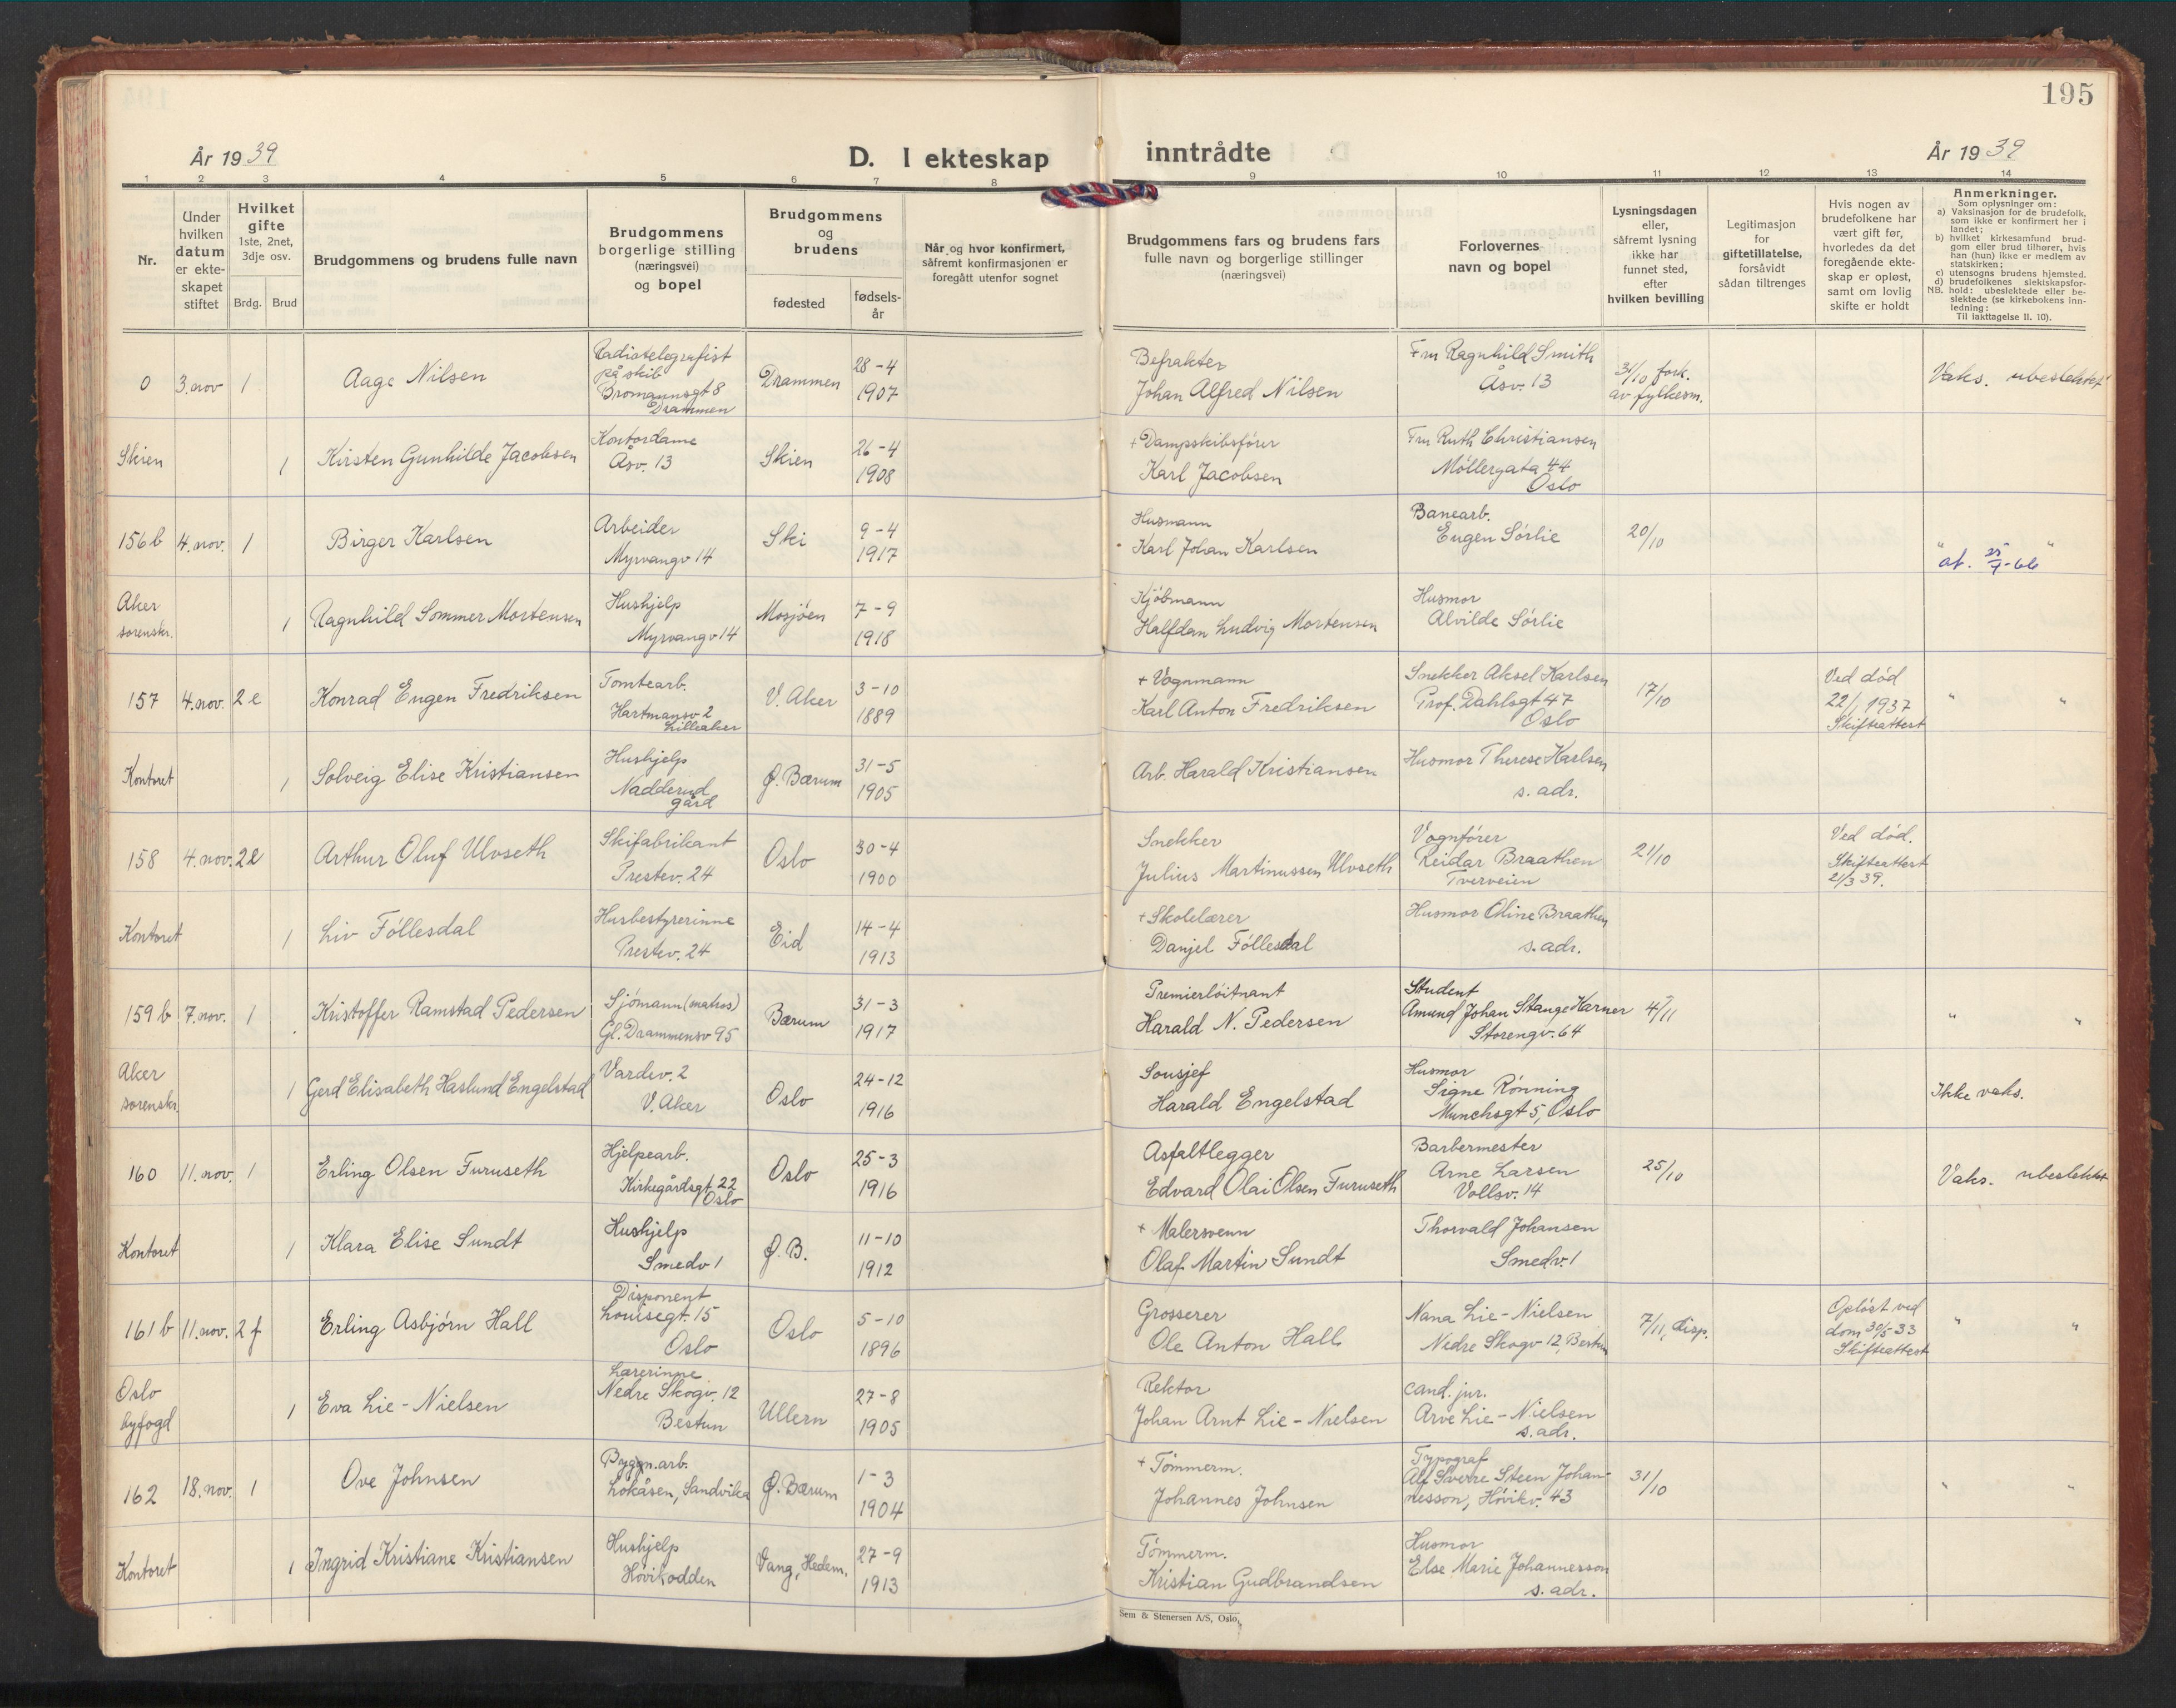 195
År 1939
D. I ekteskap inntrådte
År 1939
1 2 3 4 5 6 7 8 9 10 11 12 13 14
Nr.
Under hvilken datum er ekteskapet stiftet
Hvilket gifte
1ste, 2net, 3dje osv.
Brdg. Brud
Brudgommens og brudens fulle navn
Brudgommens borgerlige stilling (næringsvei) og bopel
Brudgommens og brudens
fødested
fødsels-år
Når og hvor konfirmert, såfremt konfirmasjonen er foregått utenfor sognet
Brudgommens fars og brudens fars fulle navn og borgerlige stillinger (næringsvei)
Forlovernes navn og bopel
Lysningsdagen eller, såfremt lysning ikke har funnet sted, efter hvilken bevilling
Legitimasjon for giftetillatelse, forsåvidt sådan tiltrenges
Hvis nogen av brudefolkene har vært gift før, hvorledes da det foregående ekteskap er opløst, samt om lovlig skifte er holdt
Anmerkninger.
Som oplysninger om:
a) Vaksinasjon for de brudefolk, som ikke er konfirmert her i landet;
b) hvilket kirkesamfund brudgom eller brud tilhører, hvis han (hun) ikke er medlem av statskirken;
c) utensogns brudens hjemsted.
d) brudefolkenes slektskapsforhold: ubeslektede eller beslektede (se kirkebokens innledning:
NB.
Til iakttagelse II. 10).
0 3. nov 1 Aage Nilsen Radiotelegrafist på skib Bromannsgt 8 Drammen Drammen 28-4 1907 Befrakter Johan Alfred Nilsen Fru Ragnhild Smith Åsv. 13 31/10 fork. av fylkesm. Vaks. ubeslektet
Skien 1 Kirsten Gunhilde Jacobsen Kontordame Åsv. 13 Skien 26-4 1908 + Dampskibsfører Karl Jacobsen Fru Ruth Christiansen Møllergata 44 Oslo
156 b 4. nov. 1 Birger Karlsen Arbeider Myrvangv 14 Ski 9-4 1917 Husmann Karl Johan Karlsen Banearb. Eugen Sørlie 20/10 " "
Aker sorenskr. 1 Ragnhild Sommer Mortensen Hushjelp Myrvangv 14 Mosjøen 7-9 1918 Kjøbmann Halfdan Ludvig Mortensen Husmor Alvilde Sørlie
157 4. nov. 2 e Konrad Eugen Fredriksen Tomtearb. Hartmansv 2 Lilleaker V. Aker 3-10 1889 + Vognmann Karl Anton Fredriksen Snekker Aksel Karlsen Prof. Dahlsgt 47 Oslo 17/10 Ved død 22/1 1937 Skifteattest " "
Kontoret 1 Solveig Elise Kristiansen Hushjelp Nadderud gård Ø. Bærum 31-5 1905 Arb. Harald Kristiansen Husmor Therese Karlsen s. adr.
158 4. nov. 2 e Arthur Oluf Ulvseth Skifabrikant Prestev. 24 Oslo 30-4 1900 Snekker Julius Martinussen Ulvseth Vognfører Reidar Braathen Tverveien 21/10 Ved død. Skifteattest 21/3 39.
Kontoret 1 Liv Føllesdal Husbestyrerinne Prestev. 24 Eid 14-4 1913 + Skolelærer Danjel Føllesdal Husmor Oline Braathen s. adr.
159 b 7. nov. 1 Kristoffer Ramstad Pedersen Sjømann (matros) Gl. Drammensv 95 Bærum 31-3 1917 Premierløitnant Harald N. Pedersen Student Amund Johan Stange Harner Storengv. 64 4/11 " "
Aker sorenskr. 1 Gerd Elisabeth Haslund Engelstad Vardev. 2 V. Aker Oslo 24-12 1916 Sousjef Harald Engelstad Husmor Signe Rønning Munchsgt 5, Oslo Ikke vaks.
160 11. nov. 1 Erling Olsen Furuseth Hjelpearb. Kirkegårdsgt. 22 Oslo Oslo 25-3 1916 Asfaltlegger Edvard Olai Olsen Furuseth Barbermester Arne Larsen Vollsv. 14 25/10 Vaks. ubeslektet
Kontoret 1 Klara Elise Sundt Hushjelp Smedv 1 Ø. B. 11-10 1912 + Malersvenn Olaf Martin Sundt Thorvald Johansen Smedv. 1
161 b 11. nov. 2 f Erling Asbjørn Hall Disponent Louisegt. 15 Oslo Oslo 5-10 1896 Grosserer Ole Anton Hall Nana Lie-Nielsen Nedre Skogv 12, Bestun 7/11, disp. Opløst ved dom 30/5 33 Skifteattest " "
Oslo byfogd 1 Eva Lie-Nielsen Lærerinne Nedre Skogv. 12 Bestun Ullern 27-8 1905 Rektor Johan Arnt Lie-Nielsen cand. jur. Arve Lie-Nielsen s. adr.
162 18. nov. 1 Ove Johnsen Byggn.arb. Løkåsen, Sandvika Ø. Bærum 1-3 1904 + Tømmerm. Johannes Johnsen Typograf Alf Sverre Steen Johannesson, Høvikv. 43 31/10 " "
Kontoret 1 Ingrid Kristiane Kristiansen Hushjelp Høvikodden Vang, Hedem. 27-9 1913 Tømmerm. Kristian Gudbrandsen Husmor Else Marie Johannesson s. adr.
Sem & Stenersen A/S, Oslo.